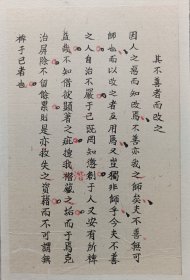 其不善者而改之
因人之惡而知改焉不善亦我之師矣夫不善無可
師也而以改之者互用焉又豈獨非師乎今夫不善
之人自治不嚴于己既罔知懲創于人又安有所裨
益哉不知借彼顯著之疵擅我潛藏之垢而于焉克
治焉隱不留餘累則是亦救失之資藉而不可謂無
裨于己者也